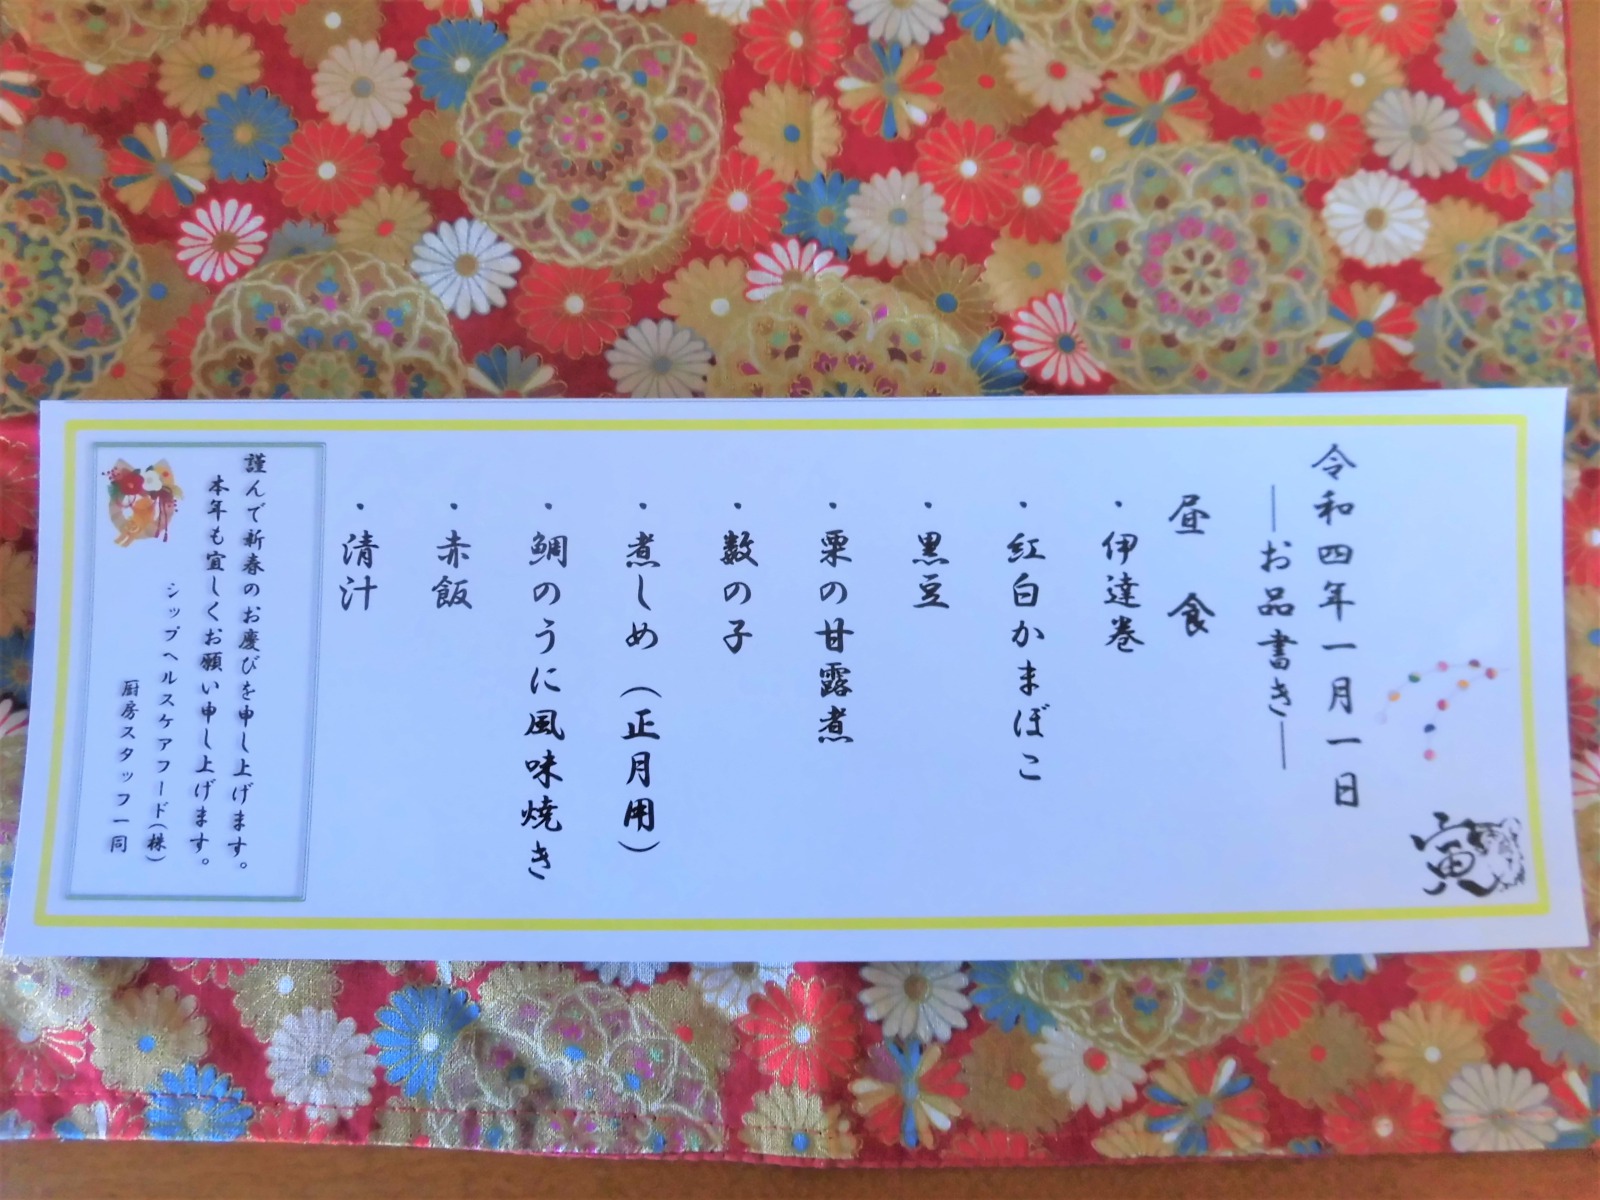 令和四年一月一日
―お品書き―
昼 食
・伊達巻
・紅白かまぼこ
・黒豆
・栗の甘露煮
・数の子
・煮しめ（正月用）
・鯛のうに風味焼き
・赤飯
・清汁
謹んで新春のお慶びを申し上げます。
本年も宜しくお願い申し上げます。
シップヘルスケアフード(株)
厨房スタッフ一同
寅